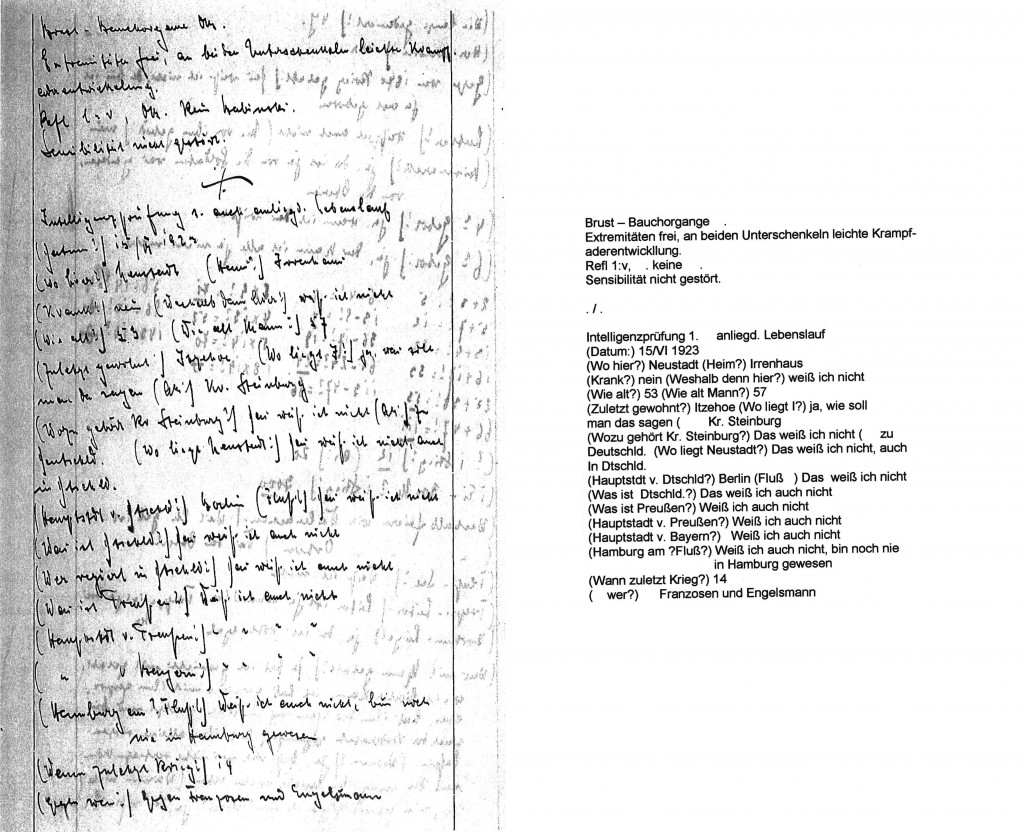 Brust - Bauchorgane Ok.
Extremitäten frei, an beiden Unterschenkeln leichte Krampf-
aderentwickelung.
Refl l = v, Ok. Kein Babinski.
Sensibilität nicht gestört.
./.
Intelligenzprüfung s. auch anliegd. Lebenslauf
(Datum?) 15/VI 1923
(Wo hier?) Neustadt (Heim?) Irrenhaus
(Krank?) nein (Weshalb dann hier?) weiß ich nicht
(Wie alt?) 53 (Wie alt Mann?) 57
(Zuletzt gewohnt?) Itzehoe (Wo liegt I?) ja, wie soll
man da sagen Kr. Steinburg
(Wozu gehört Kr Steinburg?) Das weiß ich nicht zu
Deutschld. (Wo liegt Neustadt?) Das weiß ich nicht, auch
in Dtschld.
(Hauptstdt v. Dtschld?) Berlin (Fluß?) Das weiß ich nicht
(Was ist Dtschld?) Das weiß ich auch nicht
(Wer regiert in Dtschld?) Das weiß ich auch nicht
(Was ist Preußen?) Weiß ich auch nicht
(Hauptstdt v. Preußen?) " " "
( " v Bayern?) " " " "
(Hamburg am ? Fluß?) Weiß ich auch nicht, bin noch
nie in Hamburg gewesen
(Wann zuletzt Krieg?) 14
(Gegen wen?) Gegen Franzosen und Engelsmann
Brust – Bauchorgange .
Extremitäten frei, an beiden Unterschenkeln leichte Krampf-
aderentwickllung.
Refl 1:v, . keine .
Sensibilität nicht gestört.
. / .
Intelligenzprüfung 1. anliegd. Lebenslauf
(Datum:) 15/VI 1923
(Wo hier?) Neustadt (Heim?) Irrenhaus
(Krank?) nein (Weshalb denn hier?) weiß ich nicht
(Wie alt?) 53 (Wie alt Mann?) 57
(Zuletzt gewohnt?) Itzehoe (Wo liegt I?) ja, wie soll
man das sagen ( Kr. Steinburg
(Wozu gehört Kr. Steinburg?) Das weiß ich nicht ( zu
Deutschld. (Wo liegt Neustadt?) Das weiß ich nicht, auch
In Dtschld.
(Hauptstdt v. Dtschld?) Berlin (Fluß ) Das weiß ich nicht
(Was ist Dtschld.?) Das weiß ich auch nicht
(Was ist Preußen?) Weiß ich auch nicht
(Hauptstadt v. Preußen?) Weiß ich auch nicht
(Hauptstadt v. Bayern?) Weiß ich auch nicht
(Hamburg am ?Fluß?) Weiß ich auch nicht, bin noch nie
in Hamburg gewesen
(Wann zuletzt Krieg?) 14
( wer?) Franzosen und Engelsmann